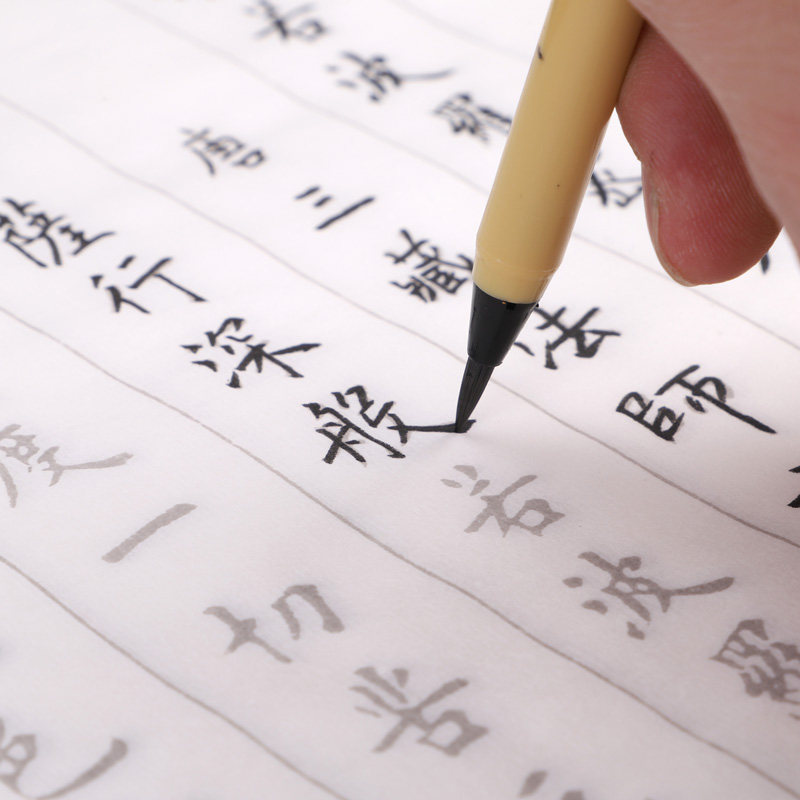 若波羅
唐三藏法師
薩行深般若波羅
度一切苦